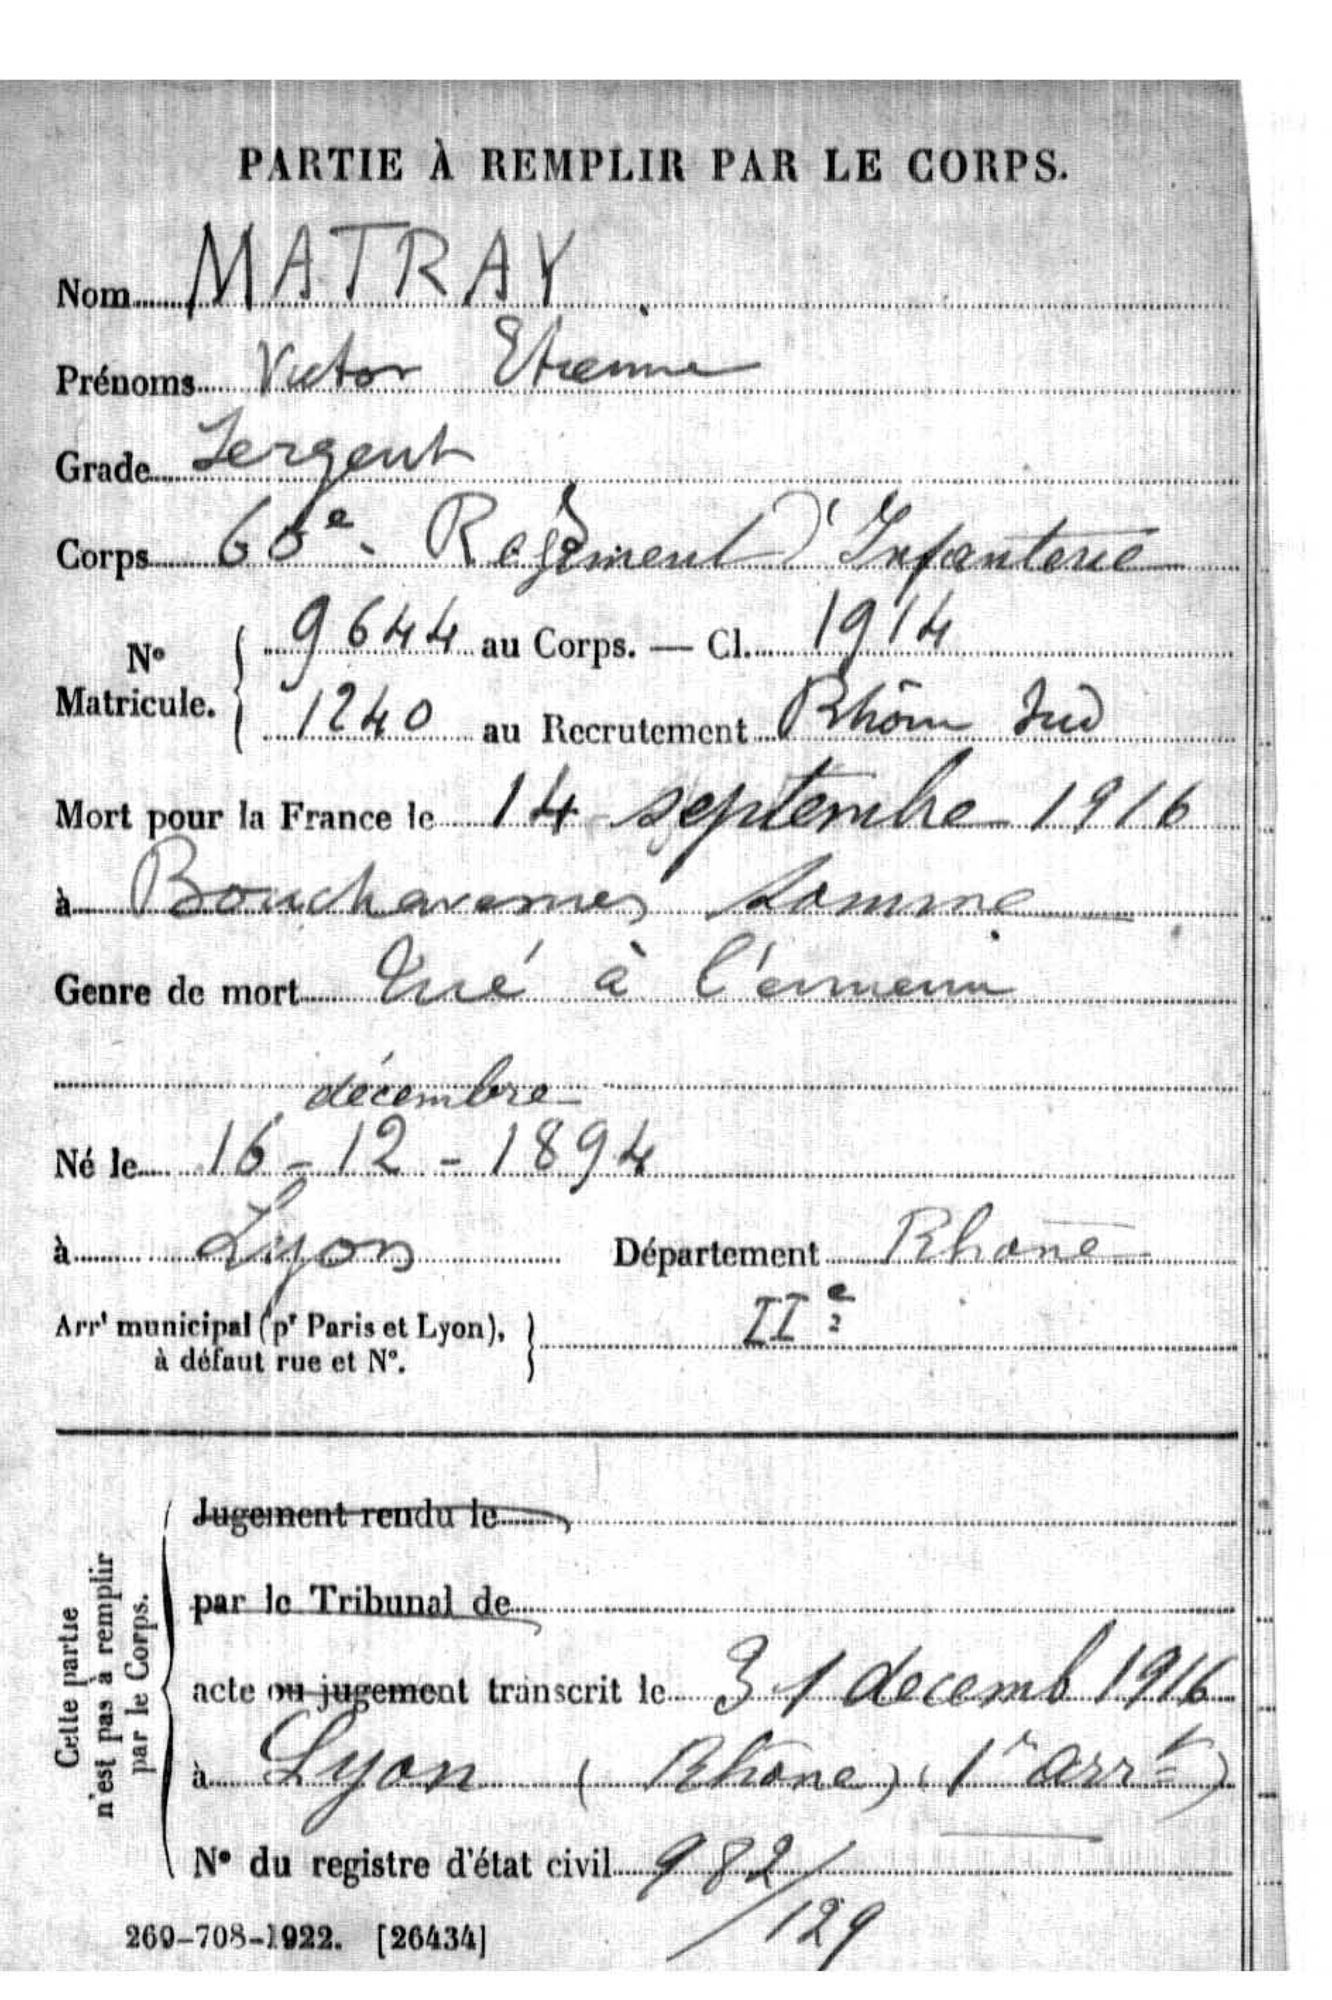 PARTIE À REMPLIR PAR LE CORPS.
Nom MATRAY
Prénoms Victor Etienne
Grade Sergent
Corps 60e Régiment d'Infanterie
No Matricule. 9644 au Corps. — Cl. 1914
1240 au Recrutement Rhône Sud
Mort pour la France le 14 septembre 1916
à Bouchavesnes Somme
Genre de mort Tué à l'ennemi
décembre
Né le 16-12-1894
à Lyon Département Rhône
Arrt municipal (pr Paris et Lyon), à défaut rue et No. IIe
Cette partie n'est pas à remplir par le Corps.
Jugement rendu le
par le Tribunal de
acte ou jugement transcrit le 31 decemb 1916
à Lyon (Rhône) (1r arrt)
No du registre d'état civil 982/129
269-708-1922. [26434]